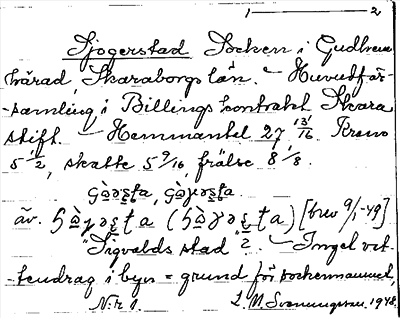 1 — 2
Sjogerstad Socken i Gudhems
härad, Skaraborgs län. — Huvudför-
-samling i Billings kontrakt Skara
stift. — Hemmantal 27 13/16. Krono
5 1/2, skatte 5 9/16, frälse 8 1/8.
äv. [brev 9/1-49]
"Sigvalds stad"? — Inget vat-
-tendrag i byn = grund för sockennamnet,
N:r 1. L. M. Svenungsson. 1948.